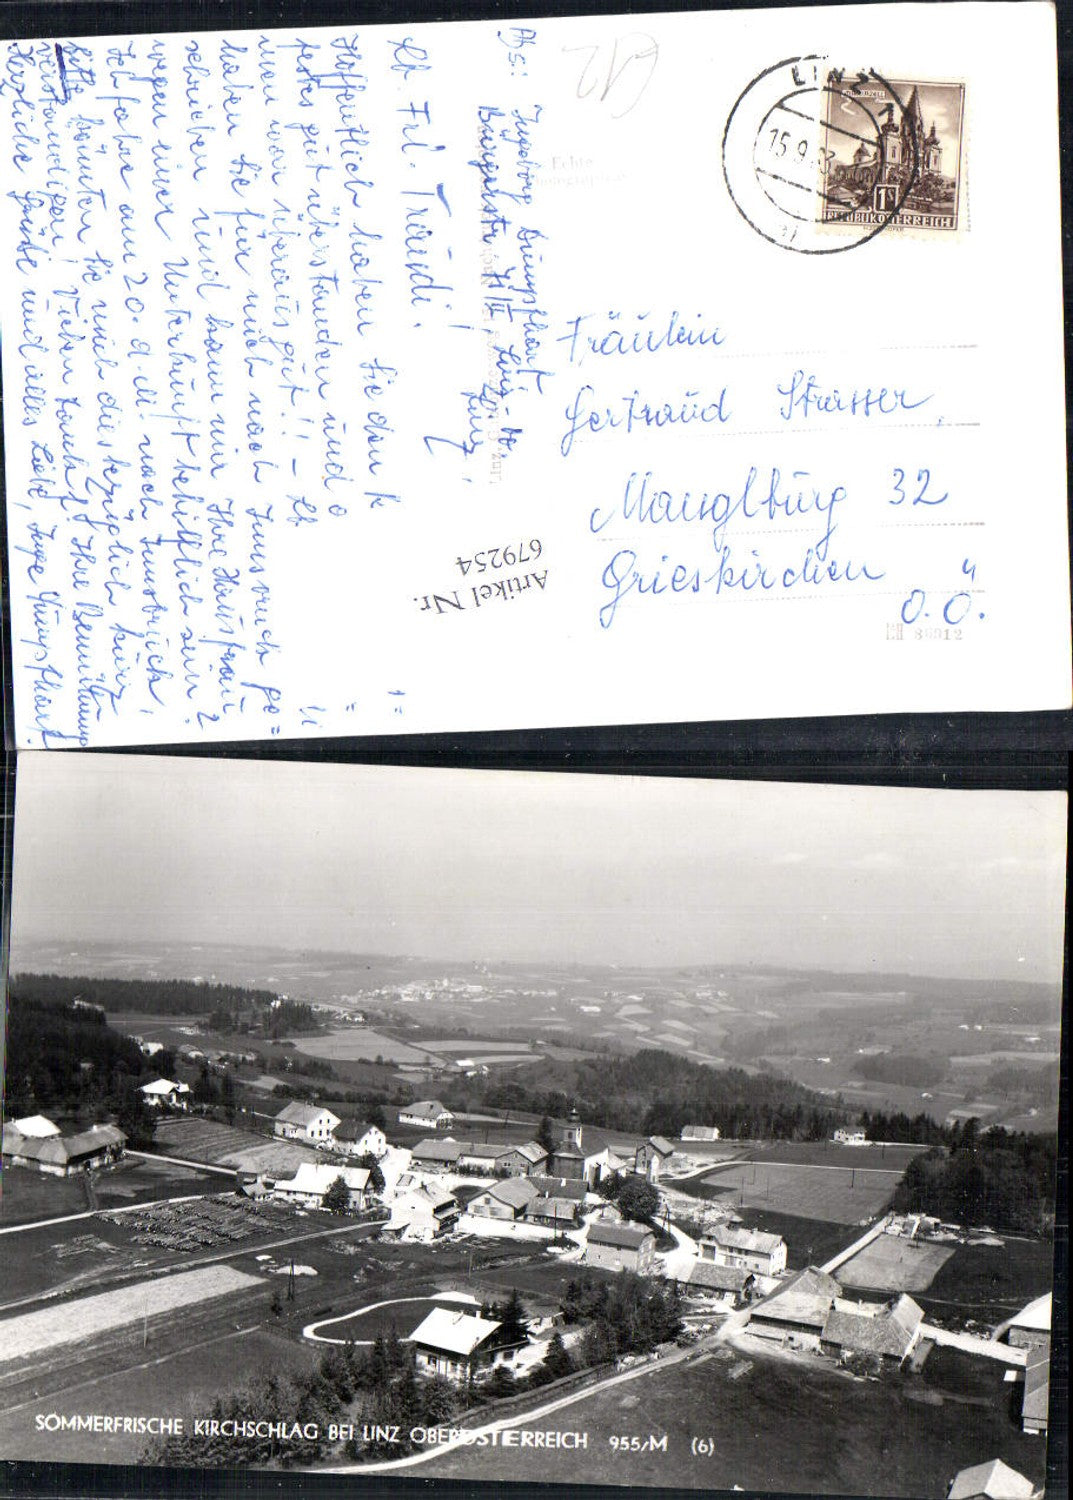 Abs.: Ingeborg Dümpfhart
Bürgerstr. 7/II, Linz
Linz,
Lb. Frl. Traudi!
Hoffentlich haben Sie den
festes gut überstanden und
men war überaus gut!! - Lb
haben Sie für mich nach Innsbruck ge=
schrieben und kann mir Ihre Hausfrau
wegen einer Unterkunft behilflich sein?
Ich fahre am 20. d. M. nach Innsbruck,
bitte könnten Sie mich diesbezüglich kurz
verständigen! Vielen Dank f. Ihre Bemühung
Herzliche Grüße und alles Liebe, Inge Dümpfhart.
C12
Echte
LINZ
15.9.
MARIAZELL
1S
REPUBLIK ÖSTERREICH
Fräulein
Gertraud Strasser
Manglburg 32
Grieskirchen
O.Ö.
Artikel Nr.
679254
86912
SOMMERFRISCHE KIRCHSCHLAG BEI LINZ OBERÖSTERREICH 955/M (6)